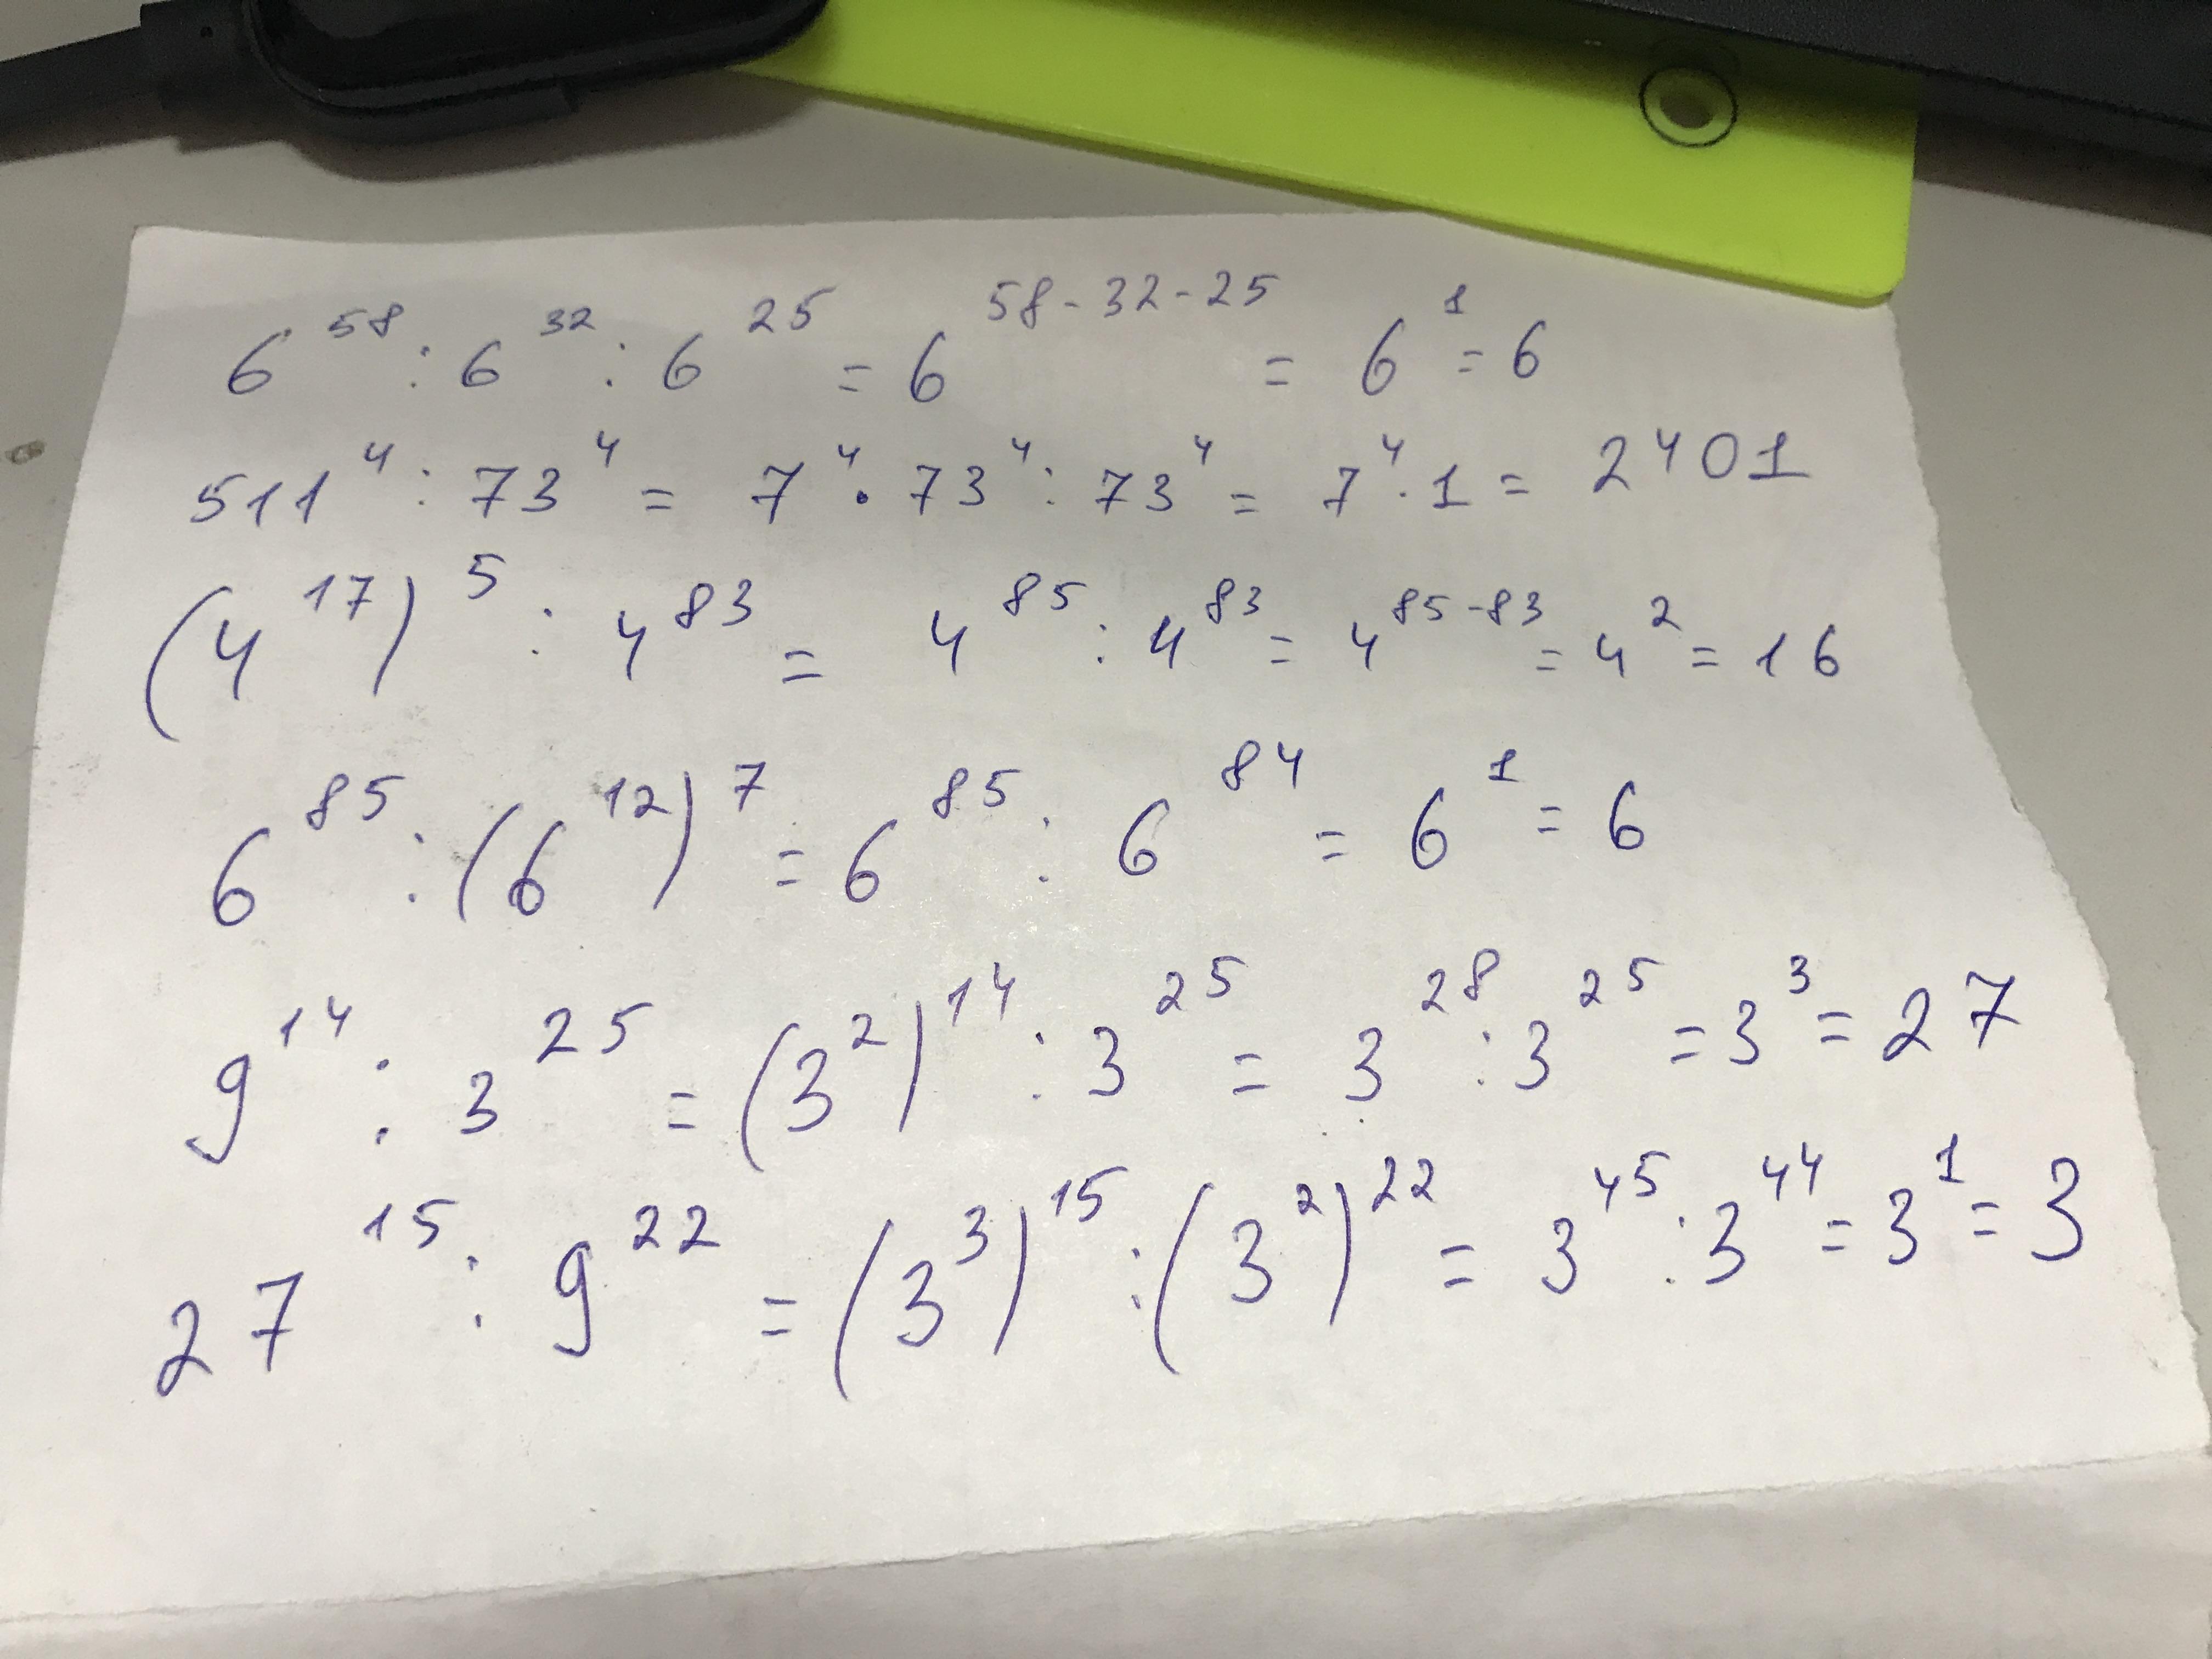 6^58 : 6^32 : 6^25 = 6^58-32-25 = 6^1 = 6
511^4 : 73^4 = 7^4 · 73^4 : 73^4 = 7^4 · 1 = 2401
(4^17)^5 : 4^83 = 4^85 : 4^83 = 4^85-83 = 4^2 = 16
6^85 : (6^12)^7 = 6^85 : 6^84 = 6^1 = 6
9^14 : 3^25 = (3^2)^14 : 3^25 = 3^28 : 3^25 = 3^3 = 27
27^15 : 9^22 = (3^3)^15 : (3^2)^22 = 3^45 : 3^44 = 3^1 = 3